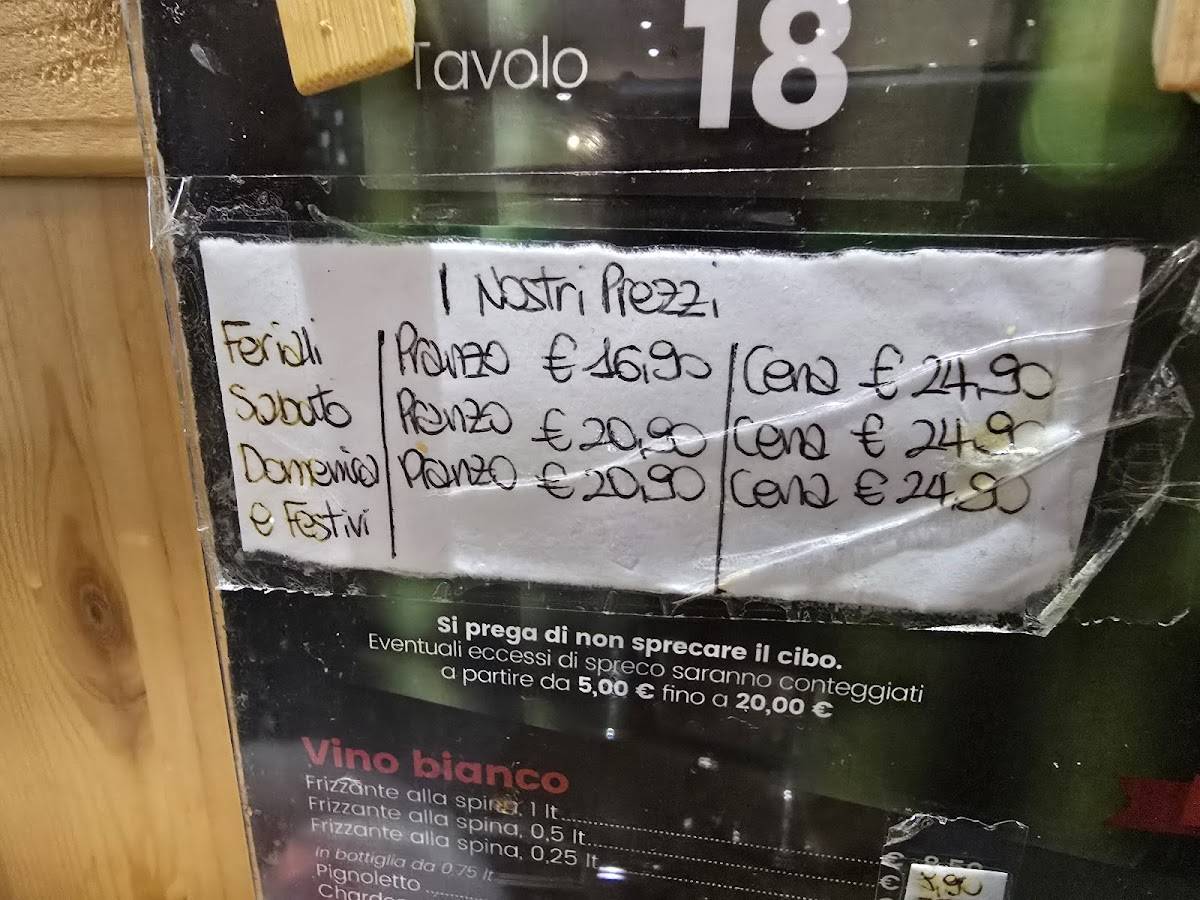 Tavolo 18
I Nostri Prezzi
Feriali Pranzo € 16,90 Cena € 24,90
Sabato Pranzo € 20,90 Cena € 24,90
Domenica Pranzo € 20,90 Cena € 24,90
e Festivi
Si prega di non sprecare il cibo.
Eventuali eccessi di spreco saranno conteggiati
a partire da 5,00 € fino a 20,00 €
Vino bianco
Frizzante alla spina, 1 lt. €
Frizzante alla spina, 0,5 lt. €
Frizzante alla spina, 0,25 lt.
in bottiglia da 0.75 lt
Pignoletto